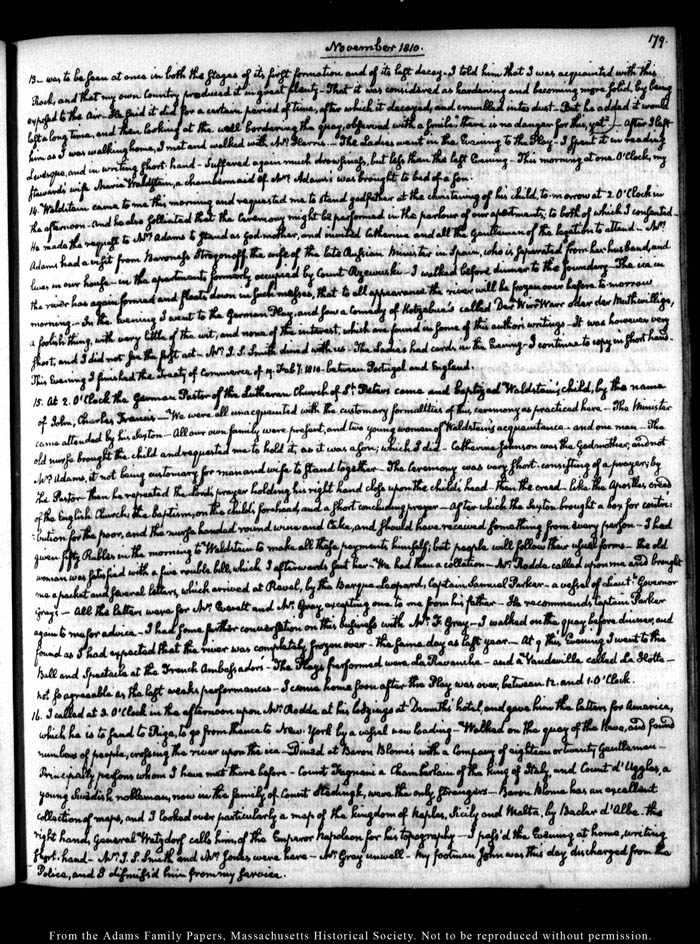 November 1810.
179.
13— was to be seen at once in both the stages of its first formation and of its last decay—I told him that I was acquainted with this
Rock, and that my own Country produced it in great plenty—That it was considered as hardening and becoming more solid, by being
exposed to the Air—He said it did for a certain period of time, after which it decayed, and crumbled into dust—But he added it would
last a long time, and then looking at the wall bordering the quay, observed with a smile "there is no danger for this, yet"—After I left
him as I was walking home, I met and walked with Mr. Harris.—The Ladies went in the Evening to the Play—I spent it in reading
Levesque, and in writing short-hand—Suffered again much drowsiness, but less than the last Evening—This morning at one O'Clock, my
Steward's wife Maria Waldstein, a chambermaid of Mrs. Adams's was brought to bed of a son.
14. Waldstein came to me this morning and requested me to stand godfather at the christening of his child, to-morrow at 2 O'Clock in
the afternoon—And he also sollicited that the Ceremony might be performed in the parlour of our apartments; to both of which I consented—
He made the request to Mrs. Adams to stand as Godmother, and invited Catherine and all the Gentlemen of the legation to attend—Mrs.
Adams had a visit from Baroness Strogonoff, the wife of the late Russian Minister in Spain, who is separated from her husband, and
lives in our house—in the apartments formerly occupied by Count Rzewuski—I walked before dinner to the foundery—The ice in
the river has again formed and floats down in such masses, that to all appearance the river will be frozen over before to morrow
morning—In the evening I went to the German Play, and saw a Comedy of Kotzebue's called Der Wirr Warr oder der Muthwillige,
a foolish thing, with very little of the wit, and none of the interest, which are found in some of this author's writings—It was however very
short, and I did not see the first act—Mr. J. S. Smith dined with us—The Ladies had cards in the Evening—I continue to copy in short hand—
This Evening I finished the Treaty of Commerce of 19. Feby. 1810. between Portugal and England.
15. At 2. O'Clock the German Pastor of the Lutheran Church of St. Peters came and baptized Waldstein's child, by the name
of John, Charles Francis—We were all unacquainted with the customary formalities of the ceremony as practiced here—The Minister
came attended by his Sexton—All our own family were present, and two young women of Waldstein's acquaintance—and one man—The
old nurse brought the child and requested me to hold it, as it was a son; which I did—Catherine Johnson was the Godmother, and not
Mrs. Adams, it not being customary for man and wife to stand together—The Ceremony was very short—consisting of a prayer, by
the Pastor—then he repeated the lord's prayer holding his right hand close upon the child's head—then the creed—like the Apostles creed
of the English Church; the baptism, on the child's forehead, and a short concluding prayer—After which the Sexton brought a box for contri-
bution for the poor, and the nurse handed round wine and Cake, and should have received something from every person—I had
given fifty Rubles in the morning to Waldstein to make all these payments himself; but people will follow their usual forms—the old
woman was satisfied with a five rouble bill, which I afterwards sent her—We had then a collation—Mr. Rodde called upon me and brought
me a packet and several letters, which arrived at Reval, by the Barque Leopard, Captain Samuel Parker—a vessel of Lieutt. Governor
Gray's—All the letters were for Mr. Everett and Mr. Gray excepting one to me from his father—He recommends Captain Parker
again to me for advice—I had some further conversation on this business with Mr. F. Gray—I walked on the quay before dinner, and
found as I had expected that the river was completely frozen over—the same day as last year—At 9 this Evening I went to the
Ball and Spectacle at the French Ambassador's—The Plays performed were La Revanche—and a Vaudeville called La Hotte—
not so agreeable as the last weeks performances—I came home soon after the Play was over, between 12. and 1. O'Clock.
16. I called at 3. O'Clock in the afternoon upon Mr. Rodde at his lodgings at Demuth's hotel, and gave him the letters for America,
which he is to send to Riga, to go from thence to New-York by a vessel now loading—Walked on the quay of the Neva, and found
numbers of people, crossing the river upon the ice—Dined at Baron Blome's with a Company of eighteen or twenty Gentlemen—
Principally persons whom I have met there before—Count Fagnani a Chamberlain of the king of Italy, and Count d'Ugglas, a
young Swedish nobleman, now in the family of Count Stedingk, were the only strangers—Baron Blome has an excellent
collection of maps, and I looked over particularly a map of the kingdom of Naples, Sicily and Malta, by Bacler d'Albe—the
right hand, General Watzdorf calls him, of the Emperor Napoleon for his topography—I pass'd the Evening at home, writing
short-hand—Mr. J. S. Smith and Mr. Jones were here—Mr. Gray unwell—My footman John was this day discharged from the
Police, and I dismiss'd him from my service.
From the Adams Family Papers, Massachusetts Historical Society. Not to be reproduced without permission.